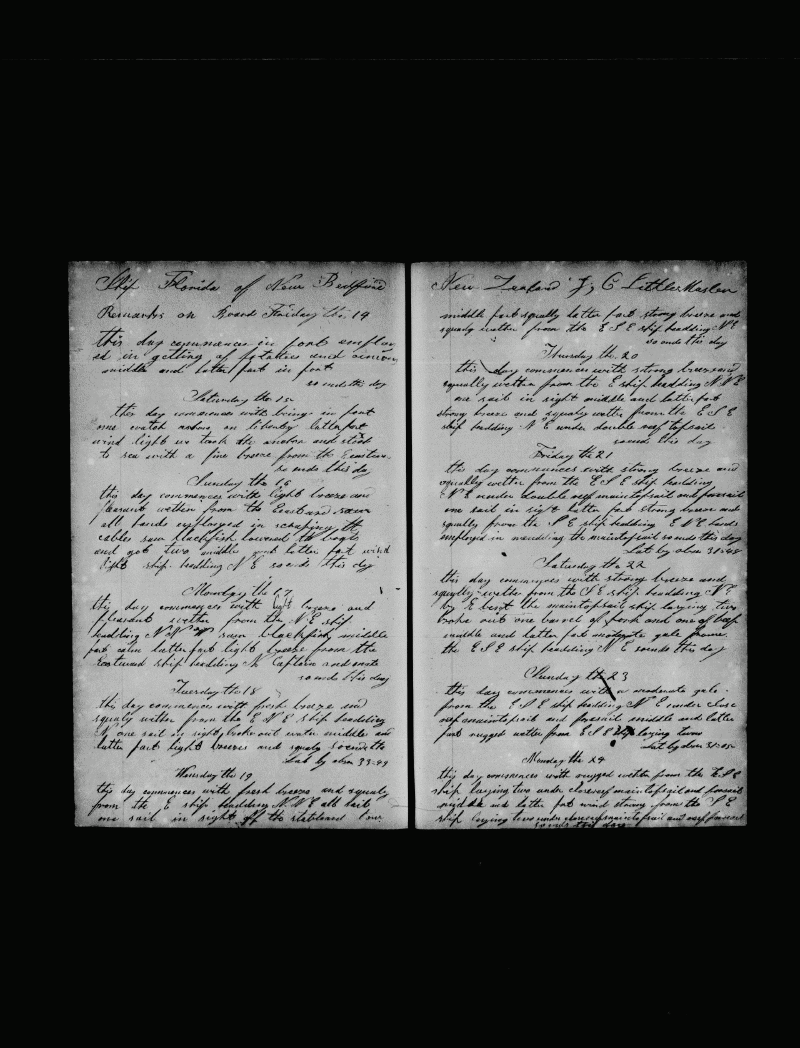 Ship Florida of New Bedford
Remarks on Board Friday the 14
this day commences in port employ
ed in getting of potatoes and onions
middle and latter part in port
so ends this day
Saturday the 15
this day commences with being in port
one watch on liberty latter part
wind light we took the anchor and stood
to sea with a fine breeze from the Eastward
so ends this day
Sunday the 16
this day commences with light breeze and
pleasant wether from the Eastward
all hands employed in scraping the
cables saw blackfish lowered the boats
and got two middle and latter part wind
light ship heading N E so ends this day
Monday the 17
this day commences with light breeze and
pleasant wether from the N E ship
heading N N W saw blackfish middle
part calm latter part light breeze from the
Eastward ship heading N Captain and mate
so ends this day
Tuesday the 18
this day commences with fresh breeze and
squaly wether from the E N E ship heading
N one sail in sight broke out water middle and
latter part light breezes and squaly so ends the
Lat by obsn 33-44
Wensday the 19
this day commences with fresh breeze and squaly
from the E ship heading N N E all sail
one sail in sight of the starboard
New Zealand J, C Little Master
middle part squally latter part strong breeze and
squaly wether from the E S E ship heading N E
so ends this day
Thursday the 20
this day commences with strong breeze and
squally wether from the E ship heading N N E
one sail in sight middle and latter part
strong breeze and squaly wether from the E S E
ship heading N E under double reef topsails
so ends this day
Friday the 21
this day commences with strong breeze and
squally wether from the E S E ship heading
N E under double reef maintopsail and foresail
one sail in sight latter part strong breeze and
squally from the S E ship heading E N E hands
employed in mending the maintopsail so ends this day
Lat by obsn 31-48
Saturday the 22
this day commences with strong breeze and
squally wether from the S E ship heading N E
by E bent the maintopsail ship laying two
broke out one barrel of pork and one of beef
middle and latter part moderate gale from
the E S E ship heading N E so ends this day
Sunday the 23
this day commences with a moderate gale
from the E S E ship heading N E under close
reef maintopsail and foresail middle and latter
part rugged wether from E S E ship laying two
Lat by obsn 31-05
Monday the 24
this day commences with rugged wether from the E S E
ship laying two under closereef maintopsail and foresail
middle and latter part wind strong from the S E
ship laying two under closereef maintopsail and reef foresail
so ends this day